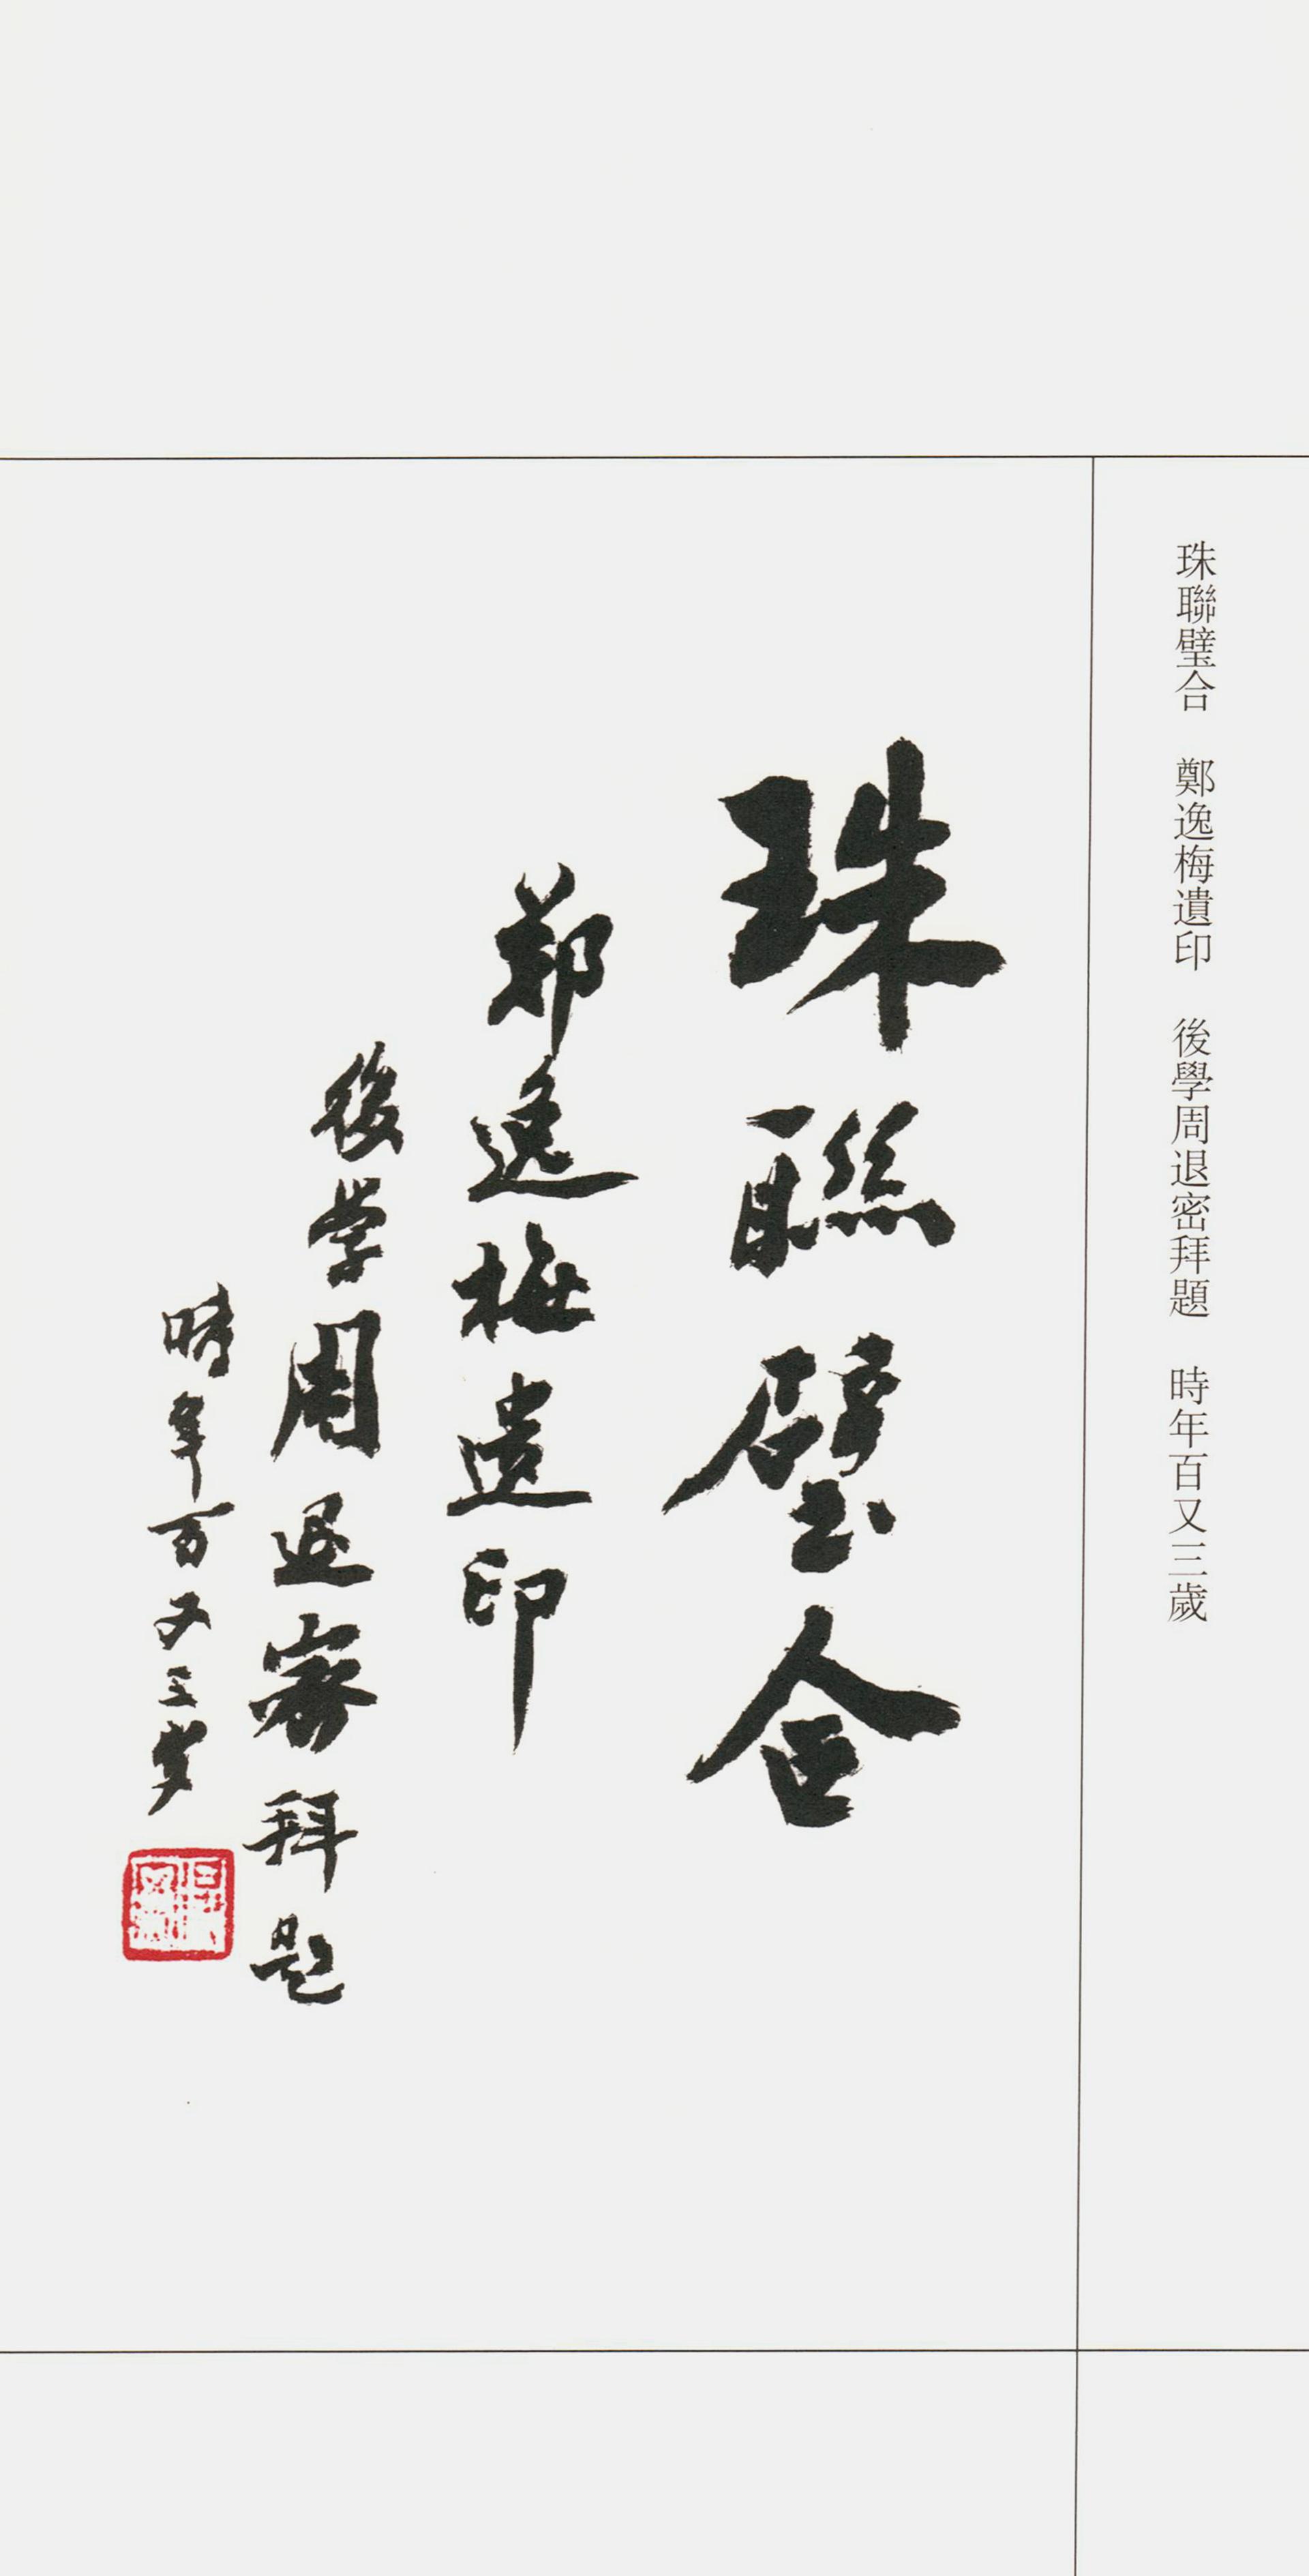 珠聯璧合　鄭逸梅遺印　後學周退密拜題　時年百又三歲
珠聯璧合
鄭逸梅遺印
後学周退密拜題
時年百又三岁